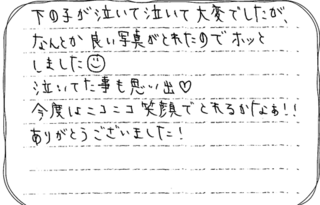 下の子が泣いて泣いて大変でしたが、
なんとか良い写真がとれたのでホッと
しました☺
泣いてた事も思い出♡
今度はニコニコ笑顔でとれるかなぁ!!
ありがとうございました!